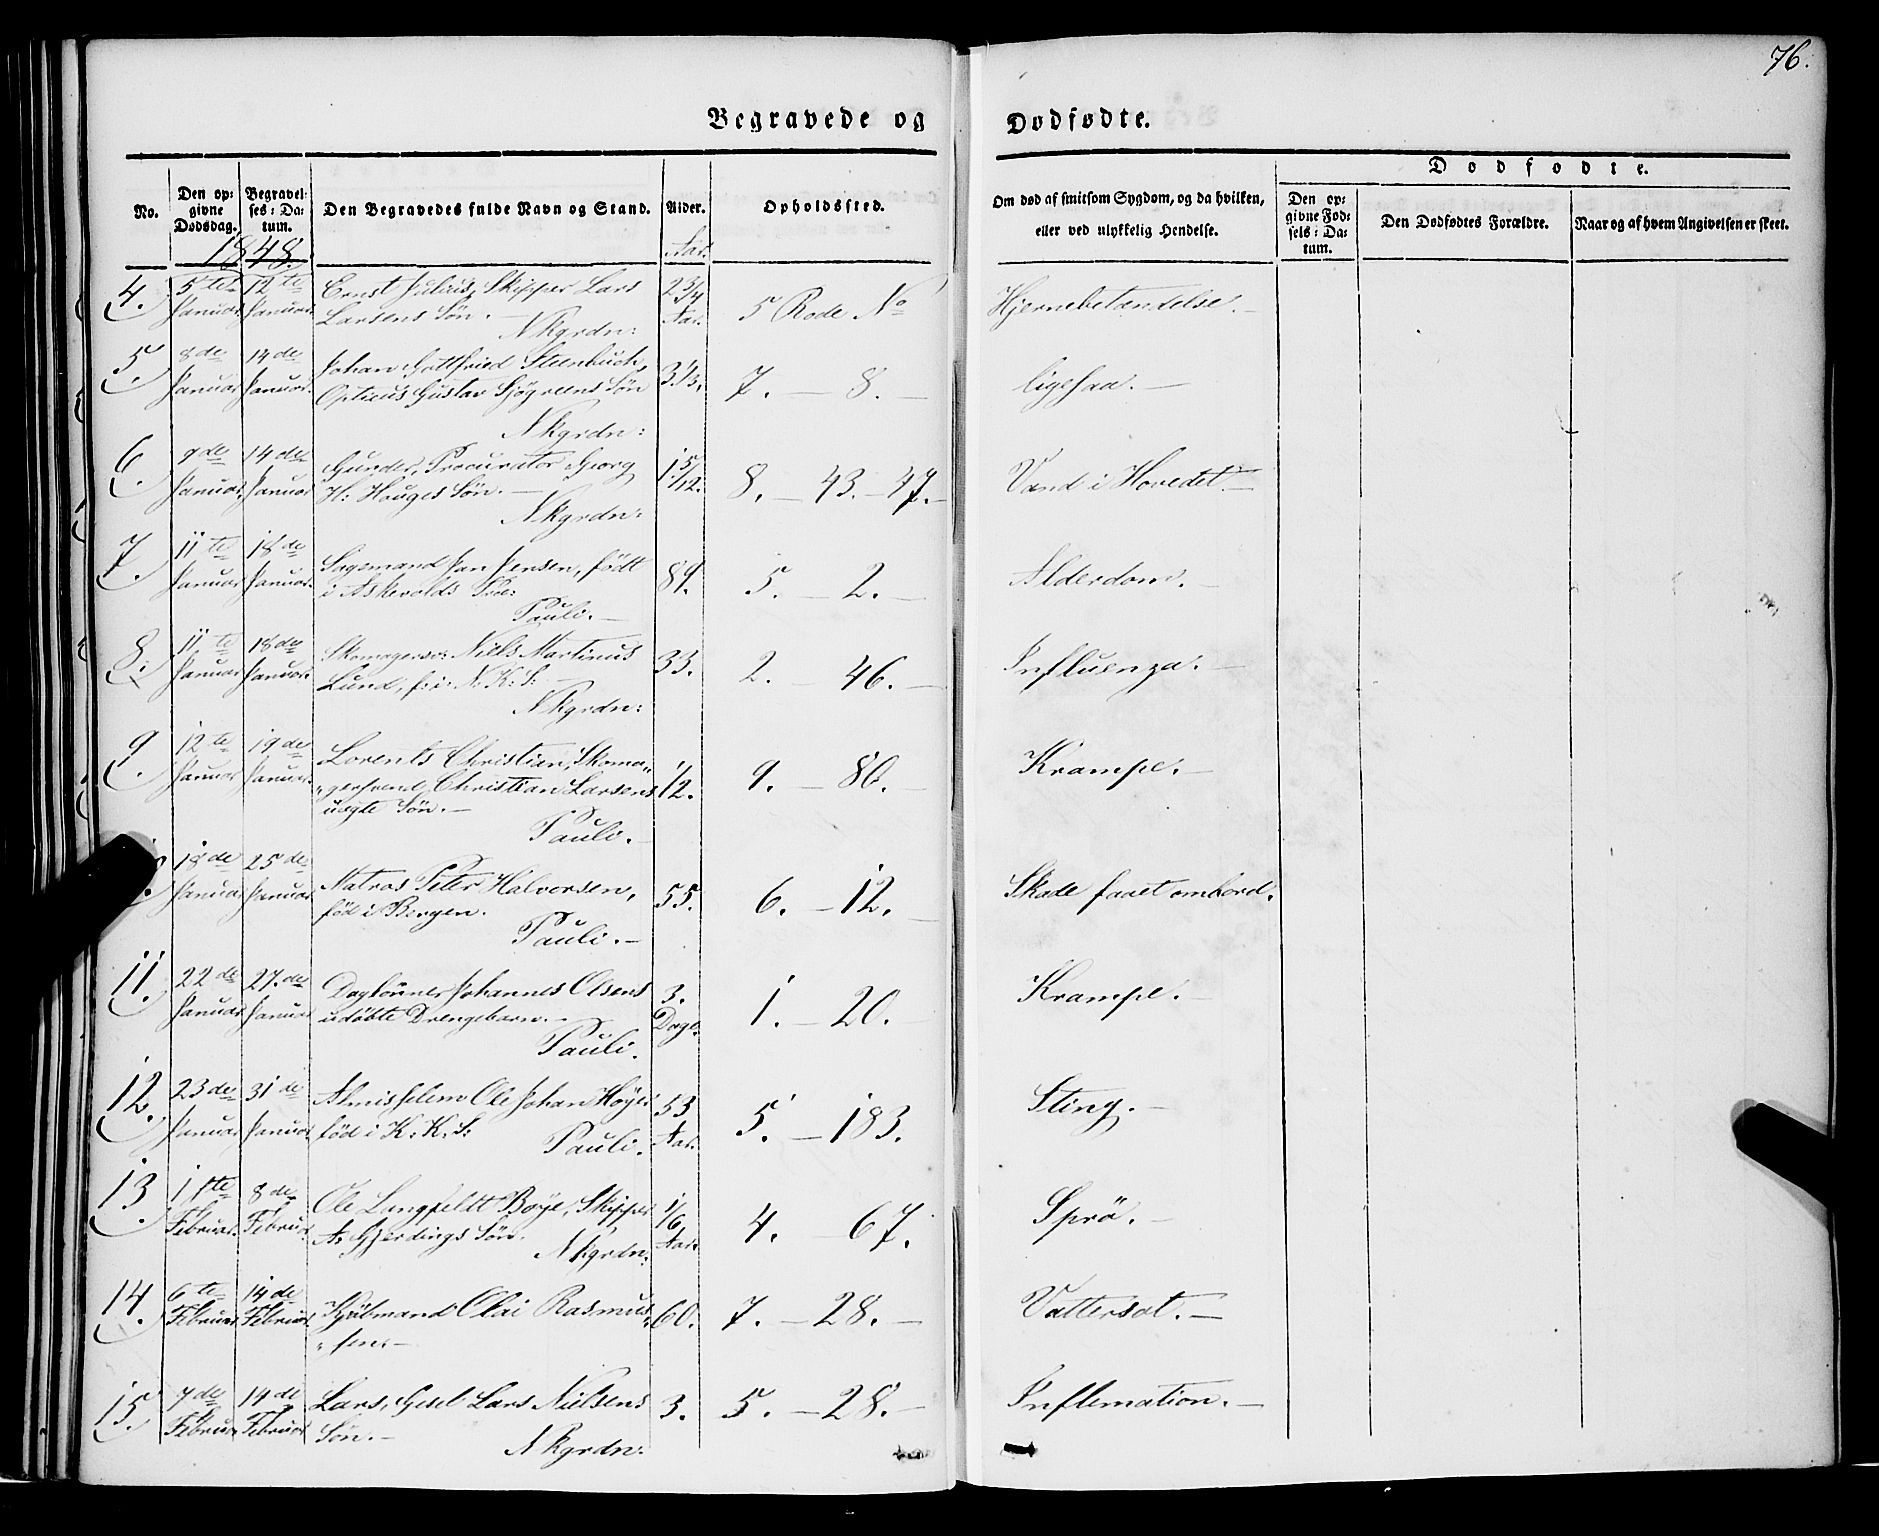 76.
Begravede og Dødfødte.
No.
Den opgivne Dødsdag.
Begravelses-Datum.
Den Begravedes fulde Navn og Stand.
Alder.
Opholdssted.
Om død af smitsom Sygdom, og da hvilken, eller ved ulykkelig Hendelse.
Dødfødte.
Den opgivne Fødsels-Datum.
Den Dødfødtes Forældre.
Naar og af hvem Angivelsen er skeet.
1848.
Aar.
4. 5te Januar 12te Januar Ernst Julius, Skipper Lars 2 3/4 Aar. 5 Rode No Hjernebetændelse.
Larsens Søn.
Nkgrdn:
5. 8de Januar 14de Januar. Johan Gottfried Steenbuch, 3 1/3. 7. — 8. — ligesaa. —
Opticus Gustav Sjøgreens Søn
Nkgrdn:
6. 9de Januar. 14de Januar Gunder, Procurator Georg 1 5/12. 8. — 43. — 47. — Vand i Hovedet. —
H: Hauges Søn. —
Nkgrdn:
7. 11te Januar 18de Januar. Sagmand Jan Jensen, født 89. 5. — 2. — Alderdom. —
i Askevolds Præ:
Pauli. —
8. 11te Januar 18de Januar. Skomagersv: Niels Martinus 33. 2. — 46. — Influenza. —
Lund, f: i N. K: S: —
Nkgrdn:
9. 12te Januar 19de Januar. Lorents Christian, Skoma„ 1/2. 9. — 80. — Krampe. —
„gersvend Christian Larsens
uægte Søn. —
Pauli. —
18de Januar 25de Januar Matros Peter Halvorsen, 55. 6. — 12. — Skade faaet ombord.
fød i Bergen.
Pauli. —
11. 22de Januar 27de Januar Daglønner Johannes Olsens 3. Dage. 1. — 20. — Krampe. —
udøbte Drengebarn. —
Pauli.
12. 23de Januar 31de Januar Almisselem Ole Johan Høyer 53 Aar. 5. — 183. Sting. —
fød i K: K. S:
Pauli.
13. 1ste Februar. 8de Februar. Ole Langfeldt Bøye, Skipper 1/6 Aar. 4. — 67. Sprö. —
A. Gjerdings Søn.
Nkgrdn:
14. 6te Februar 14de Februar Kjøbmand Olai Rasmus„ 60. 7. — 28. — Vattersot. —
„sen. —
15. 7de Februar 14de Februar Lars, Gesel Lars Nielsens 3. 5. — 28. — Inflemation. —
Søn. —
Nkgrdn: